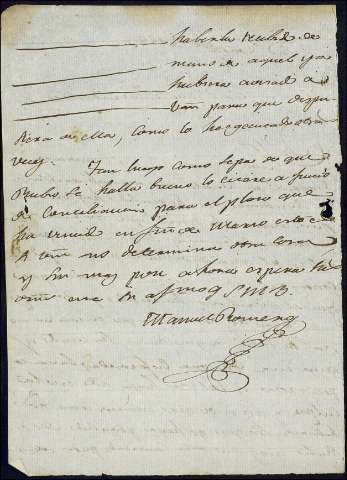 haberlo recibido de
mano de aquel y no
hubiera avisado a
Vm para que dispu
siera de ella, como lo he ejecutado otras
veces. Tan luego como sepa de que
Rubio se halla bueno lo citare a juicio
de Conciliacion para el plazo que
ha vencido en fin de Marzo
Vm no determina otra cosa
y sin mas por ahora espera
su afmo q S M B.
Manuel Romero